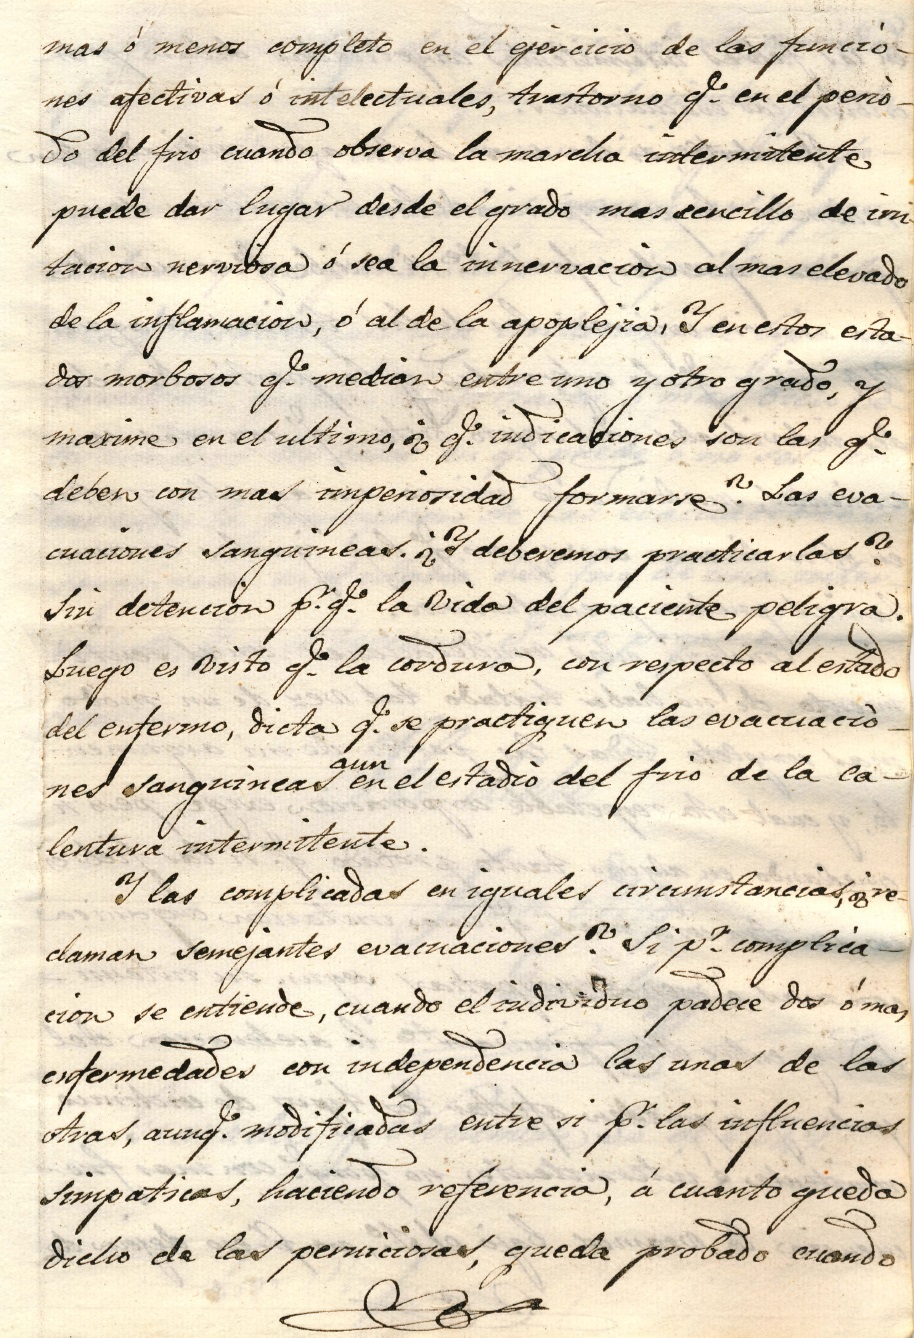 mas ó menos completo en el ejercicio de las funcio-
nes afectivas ó intelectuales, trastorno q.e en el perio-
do del frio cuando observa la marcha intermitente
puede dar lugar desde el grado mas sencillo de irri
tacion nerviosa ó sea la innervacion al mas elevado
de la inflamacion, ó al de la apoplejia. Y en estos esta-
dos morbosos q.e median entre uno y otro grado, y
maxime en el ultimo, ¿q.e indicaciones son las q.e
deben con mas imperiosidad formarse? Las eva-
cuaciones sanguineas. ¿Y deberemos practicarlas?
Sin detencion p.r q.e la vida del paciente peligra.
Luego es visto q.e la cordura, con respecto al estado
del enfermo, dicta q.e se practiquen las evacuacio-
nes sanguineas aun en el estadio del frio de la ca-
lentura intermitente.
Y las complicadas en iguales circunstancias, ¿re-
claman semejantes evacuaciones? Si p.r complica-
cion se entiende, cuando el individuo padece dos ó mas
enfermedades con independencia las unas de las
otras, aunq.e modificadas entre si p.r las influencias
simpaticas, haciendo referencia, á cuanto queda
dicho de las perniciosas, queda probado cuando